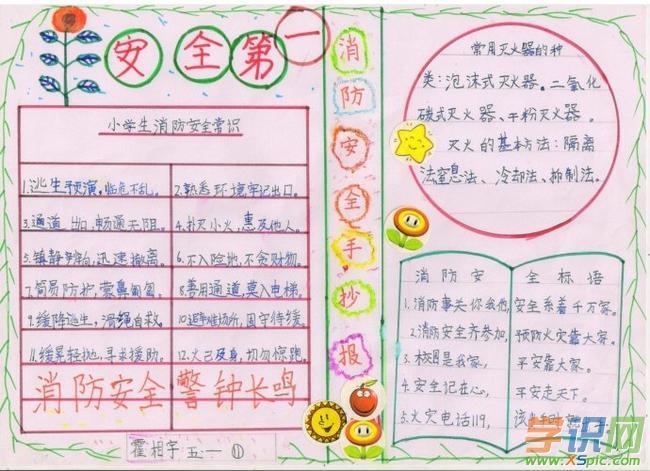 安全第一
小学生消防安全常识
1.逃生预演,临危不乱。
2.熟悉环境,牢记出口。
3.通道出口,畅通无阻。
4.扑灭小火,惠及他人。
5.镇静,迅速撤离。
6.不入险地,不贪财物。
7.简易防护,蒙鼻匍匐。
8.善用通道,莫入电梯。
9.缓降逃生,滑绳自救。
10.避难场所,固守待援。
11.缓晃轻抛,寻求援助。
12.火已及身,切勿惊跑。
消防安全警钟长鸣
霍相宇 五一 ⑪
消防安全手抄报
常用灭火器的种
类:泡沫式灭火器。二氧化
碳式灭火器、干粉灭火器。
灭火的基本方法:隔离
法窒息法、冷却法、抑制法。
消防安全标语
1.消防事关你么他,安全系着千万家。
2.消防安全齐参加,预防火灾靠大家。
3.校园是我家,平安靠大家。
4.安全记在心,平安走天下。
5.火灾电话119,
学识网
www.XSpic.com